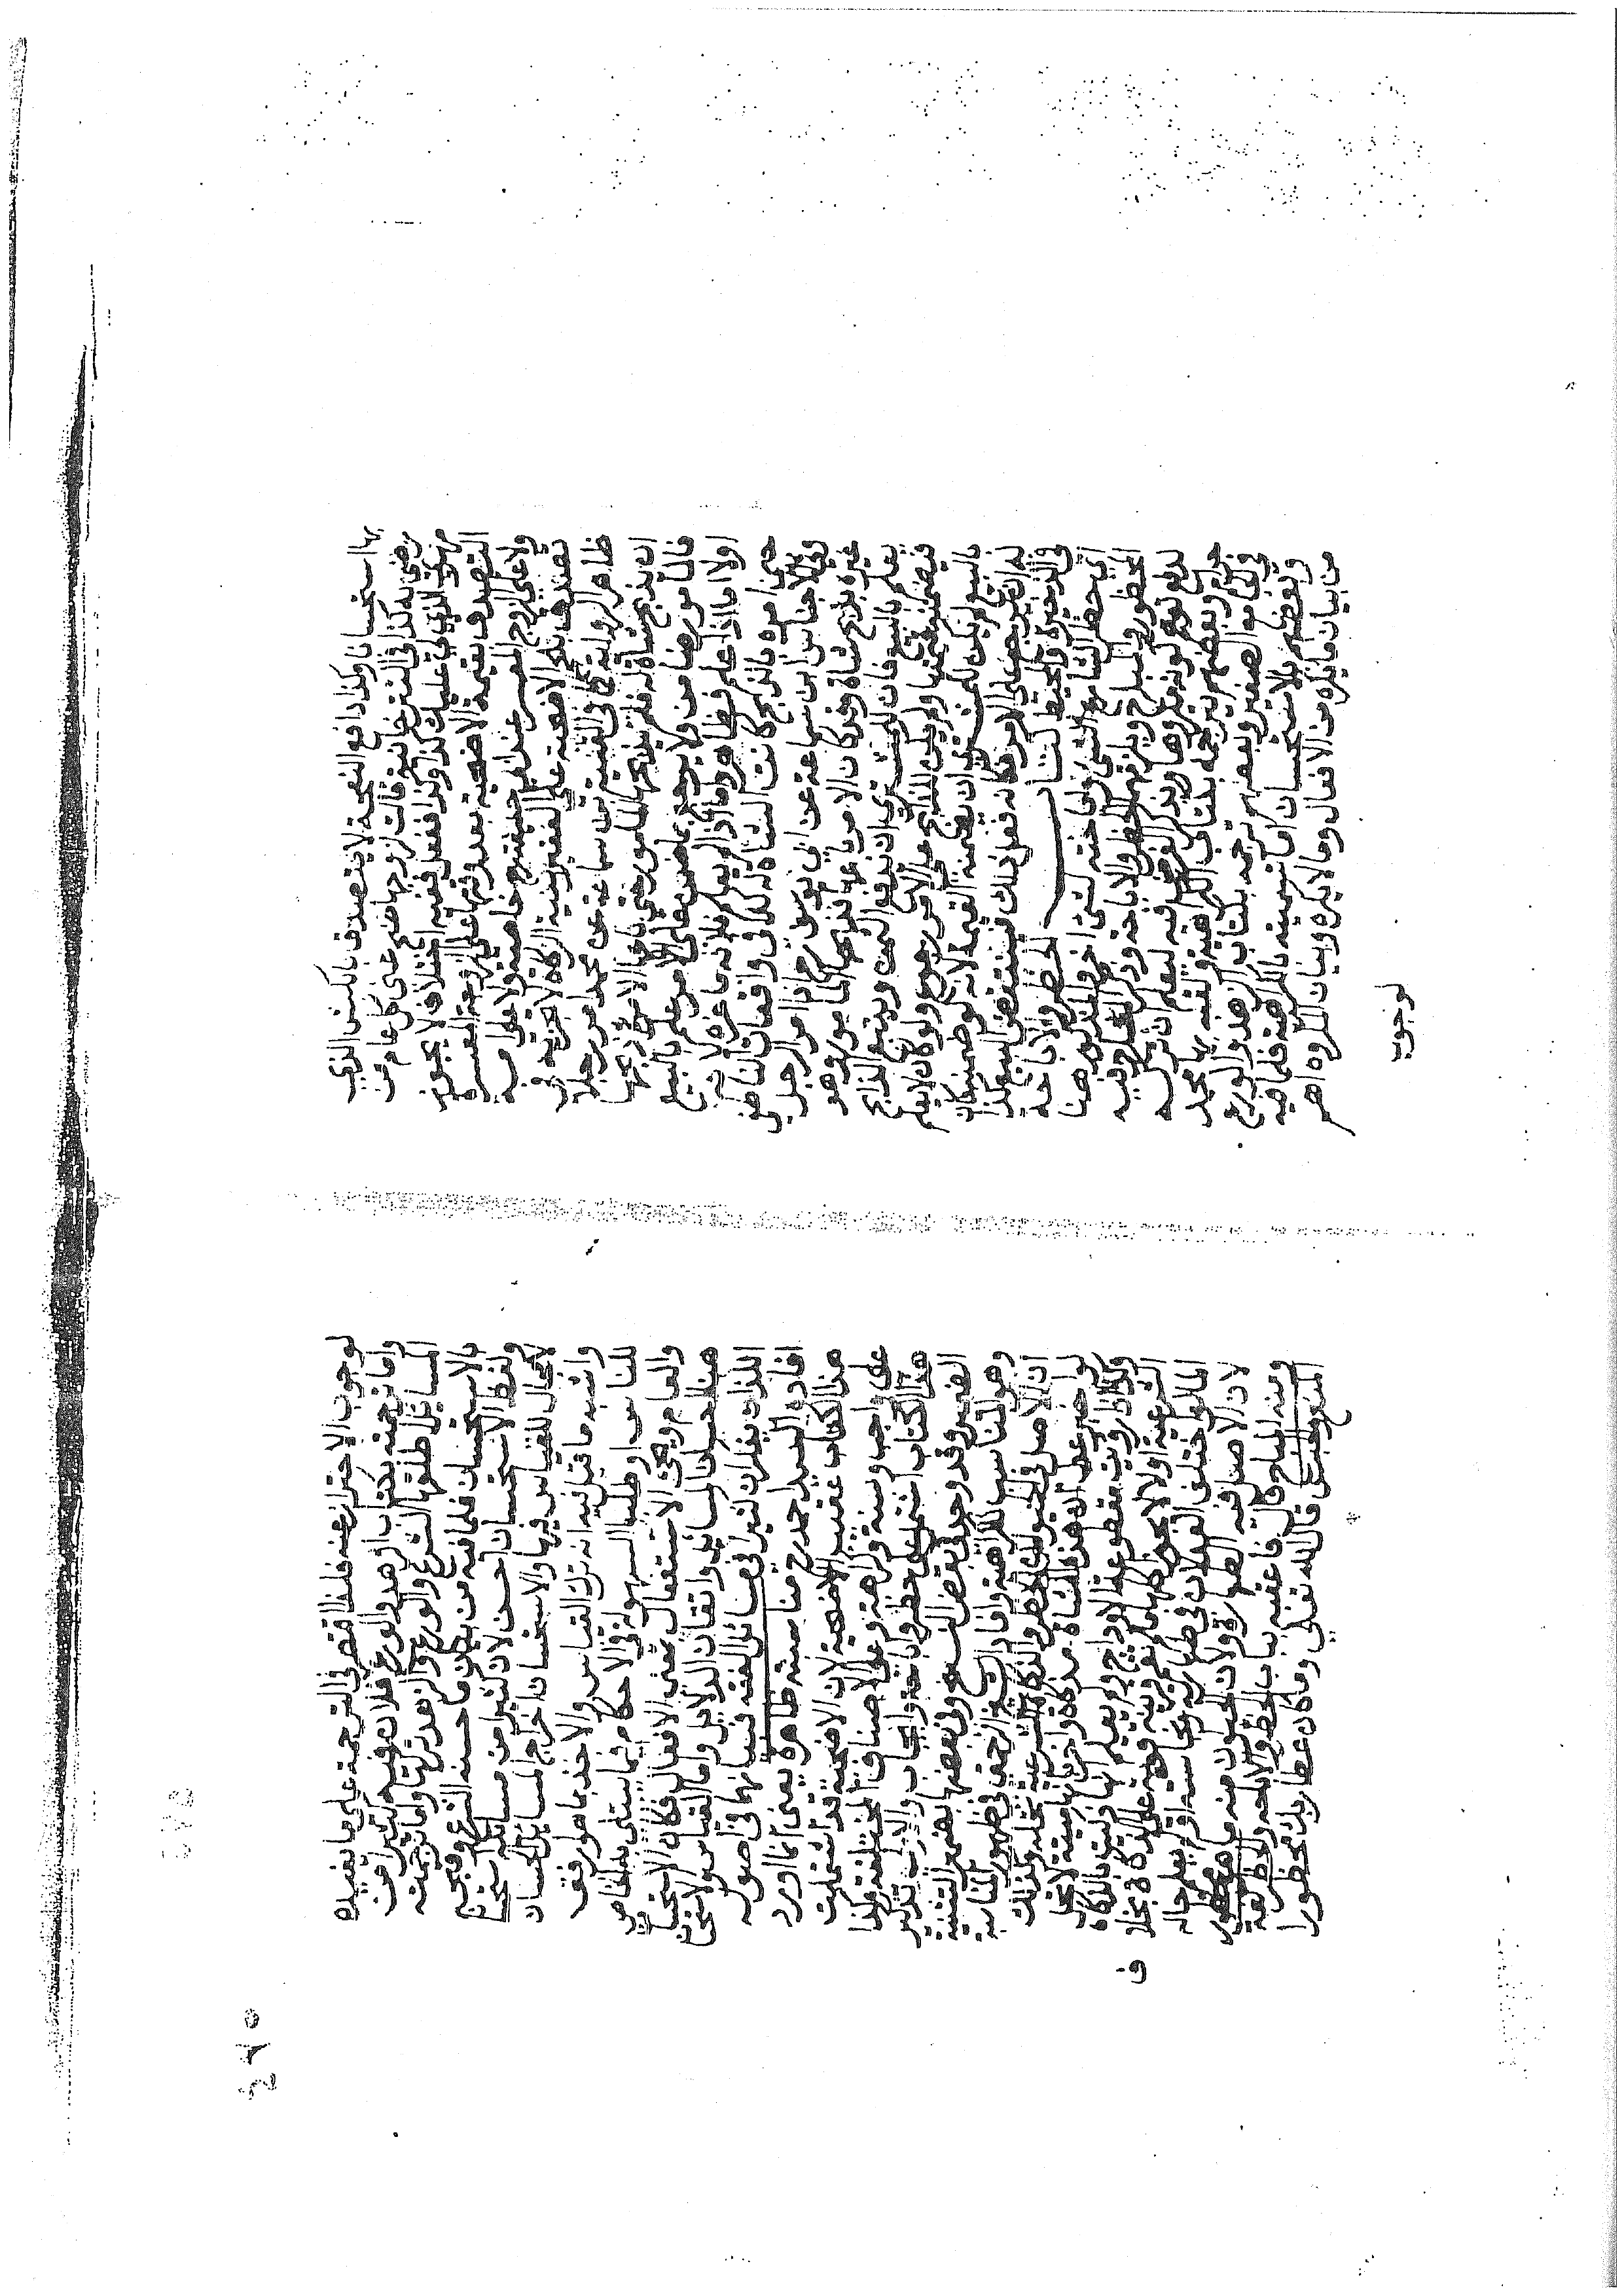 بها استحسانا وكذا دافع النعجة لا يتصدق بالكبش الذي
رضي به كذا في الشرح
التصدق بقيمة الاضحية بعد وقتها على
ولا على الزوج المعسر عند ابي حنيفة رح خاصة ولا على
تصدق بلحم الاضحية على الفقير بنية الزكاة لا تجزيه في
ظاهر الرواية كما في القنية بن سماعة عن محمد امر رجلا
ان يذبح شاة له فلم يذبحها المامور حتى باعها الامر ثم ذبحها
فالمامور ضامن ولا يرجع بما ضمن على الامر علم بالبيع
اولا اما اذا علم فظاهر واما اذا لم يعلم فلانه ما غره لانه
حين امره بالذبح كانت الشاة له كما في واقعات الناطفي
وفي الاجناس ابن سماعة عن ابي يوسف رح اذا امر الرجل
غيره بذبح شاة وقد كان الامر باعها فذبحها المامور وهو
يعلم بالبيع فان للمشتري ان يدفع الثمن ويتبع الذابح
فيضمنه قيمتها ولم يكن للذابح على الامر رجوع ولو كان لا يعلم
بالبيع لم يكن للمشتري ان يضمنه القيمة لانه لو ضمنه كان
له ان يرجع على الامر فكانه فعل ذلك فينتقض البيع كذا
في الذخيرة والمحيط كتاب الحظر والاباحة
اي حظر الشارع الشي واباحته لشي اخر والمذكور هنا
المحظور والمباح ويلزمه الحظر والاباحة وذكر المباح فيه
لدفع توهم كونه مكروها وذكر الفرض فيه ليعلم ان تركه
حرام وبعضهم ترجمه بكتاب الكراهية ولقبه بها محمد
في الجامع الصغير وبعضهم ترجمه بكتاب الزهد والورع
وبعضهم بالاستحسان اما تسميته بالكراهية فلما فيه
من بيان ما يكره من الافعال وما لا يكره وبيان المكروه اهم
لوجوب
لوجوب الاحتراز عنه فلفظ اقتصر في الترجمة على ما يفيده
واما ترجمته بكتاب الزهد والورع فلان فيه كثيرا من
المسائل اطلقها الشرع والورع والزهد تركها واما ترجمته
بالاستحسان فلما فيه من بيان ما حسنه الشرع وقبحه
ولفظ الاستحسان احسن لان كثيرا من مسائله استحسان
لا مجال للقياس فيها والاستحسان اخراج المسائل الحسان
واشبه ما قيل فيه انه ترك القياس والاخذ بما هو ارفق
للناس او طلب السهولة في الاحكام فيما يبتلى به الخاص
والعام ويجي الاستفعال بمعنى الافعال فكان الاستحسان
هنا احسان المسائل واتقان الدلائل واما القياس والاستحسان
اللذان يذكران كثيرا في مسائل الفقه فبيانهما في اصوله
افاده السيد احمد رح مناسبته ظاهرة يعني انما اورد
هذا الكتاب عقيب الاضحية لان الاضحية قد اشتملت
على واجب وسنة وكراهة وعلى اصناف المختلفة وكذا
هذا الكتاب اشتمل على حظر واباحة وايجاب والارب تذكير
الضمير وقد وجد في بعض النسخ وفي بعضها بضمير التثنية
وهو المناسب للكراهية وافاد الشيخ الرحمتي في ظهور المناسبة
ان الاصل في الحيوان الحظر والذكاة الشرعية تحله وكذلك
لو اخبر عدل ان هذه الشاة مذكاة واخر انها ميتة لا تحل
وكذا لو رويت مقطوعة الاوداج ولم يعلم انها ذكيت بالذكاة
الشرعية اولا لا يحل اكلها ما لم تقم قرينة قوية على الذكاة بخلاف
الماء لو اختلف العدلان في طهارته ونجاسته او لم يعلم حاله
لان الاصل فيه الطهارة ولان الحيوان منه ما هو محظور
ومنه المباح قال فاعقبه بباب الحظر والاباحة والحظر لغة
المنع والحبس قال الله تعالى وما كان عطاء ربك محظورا
٢٤٥